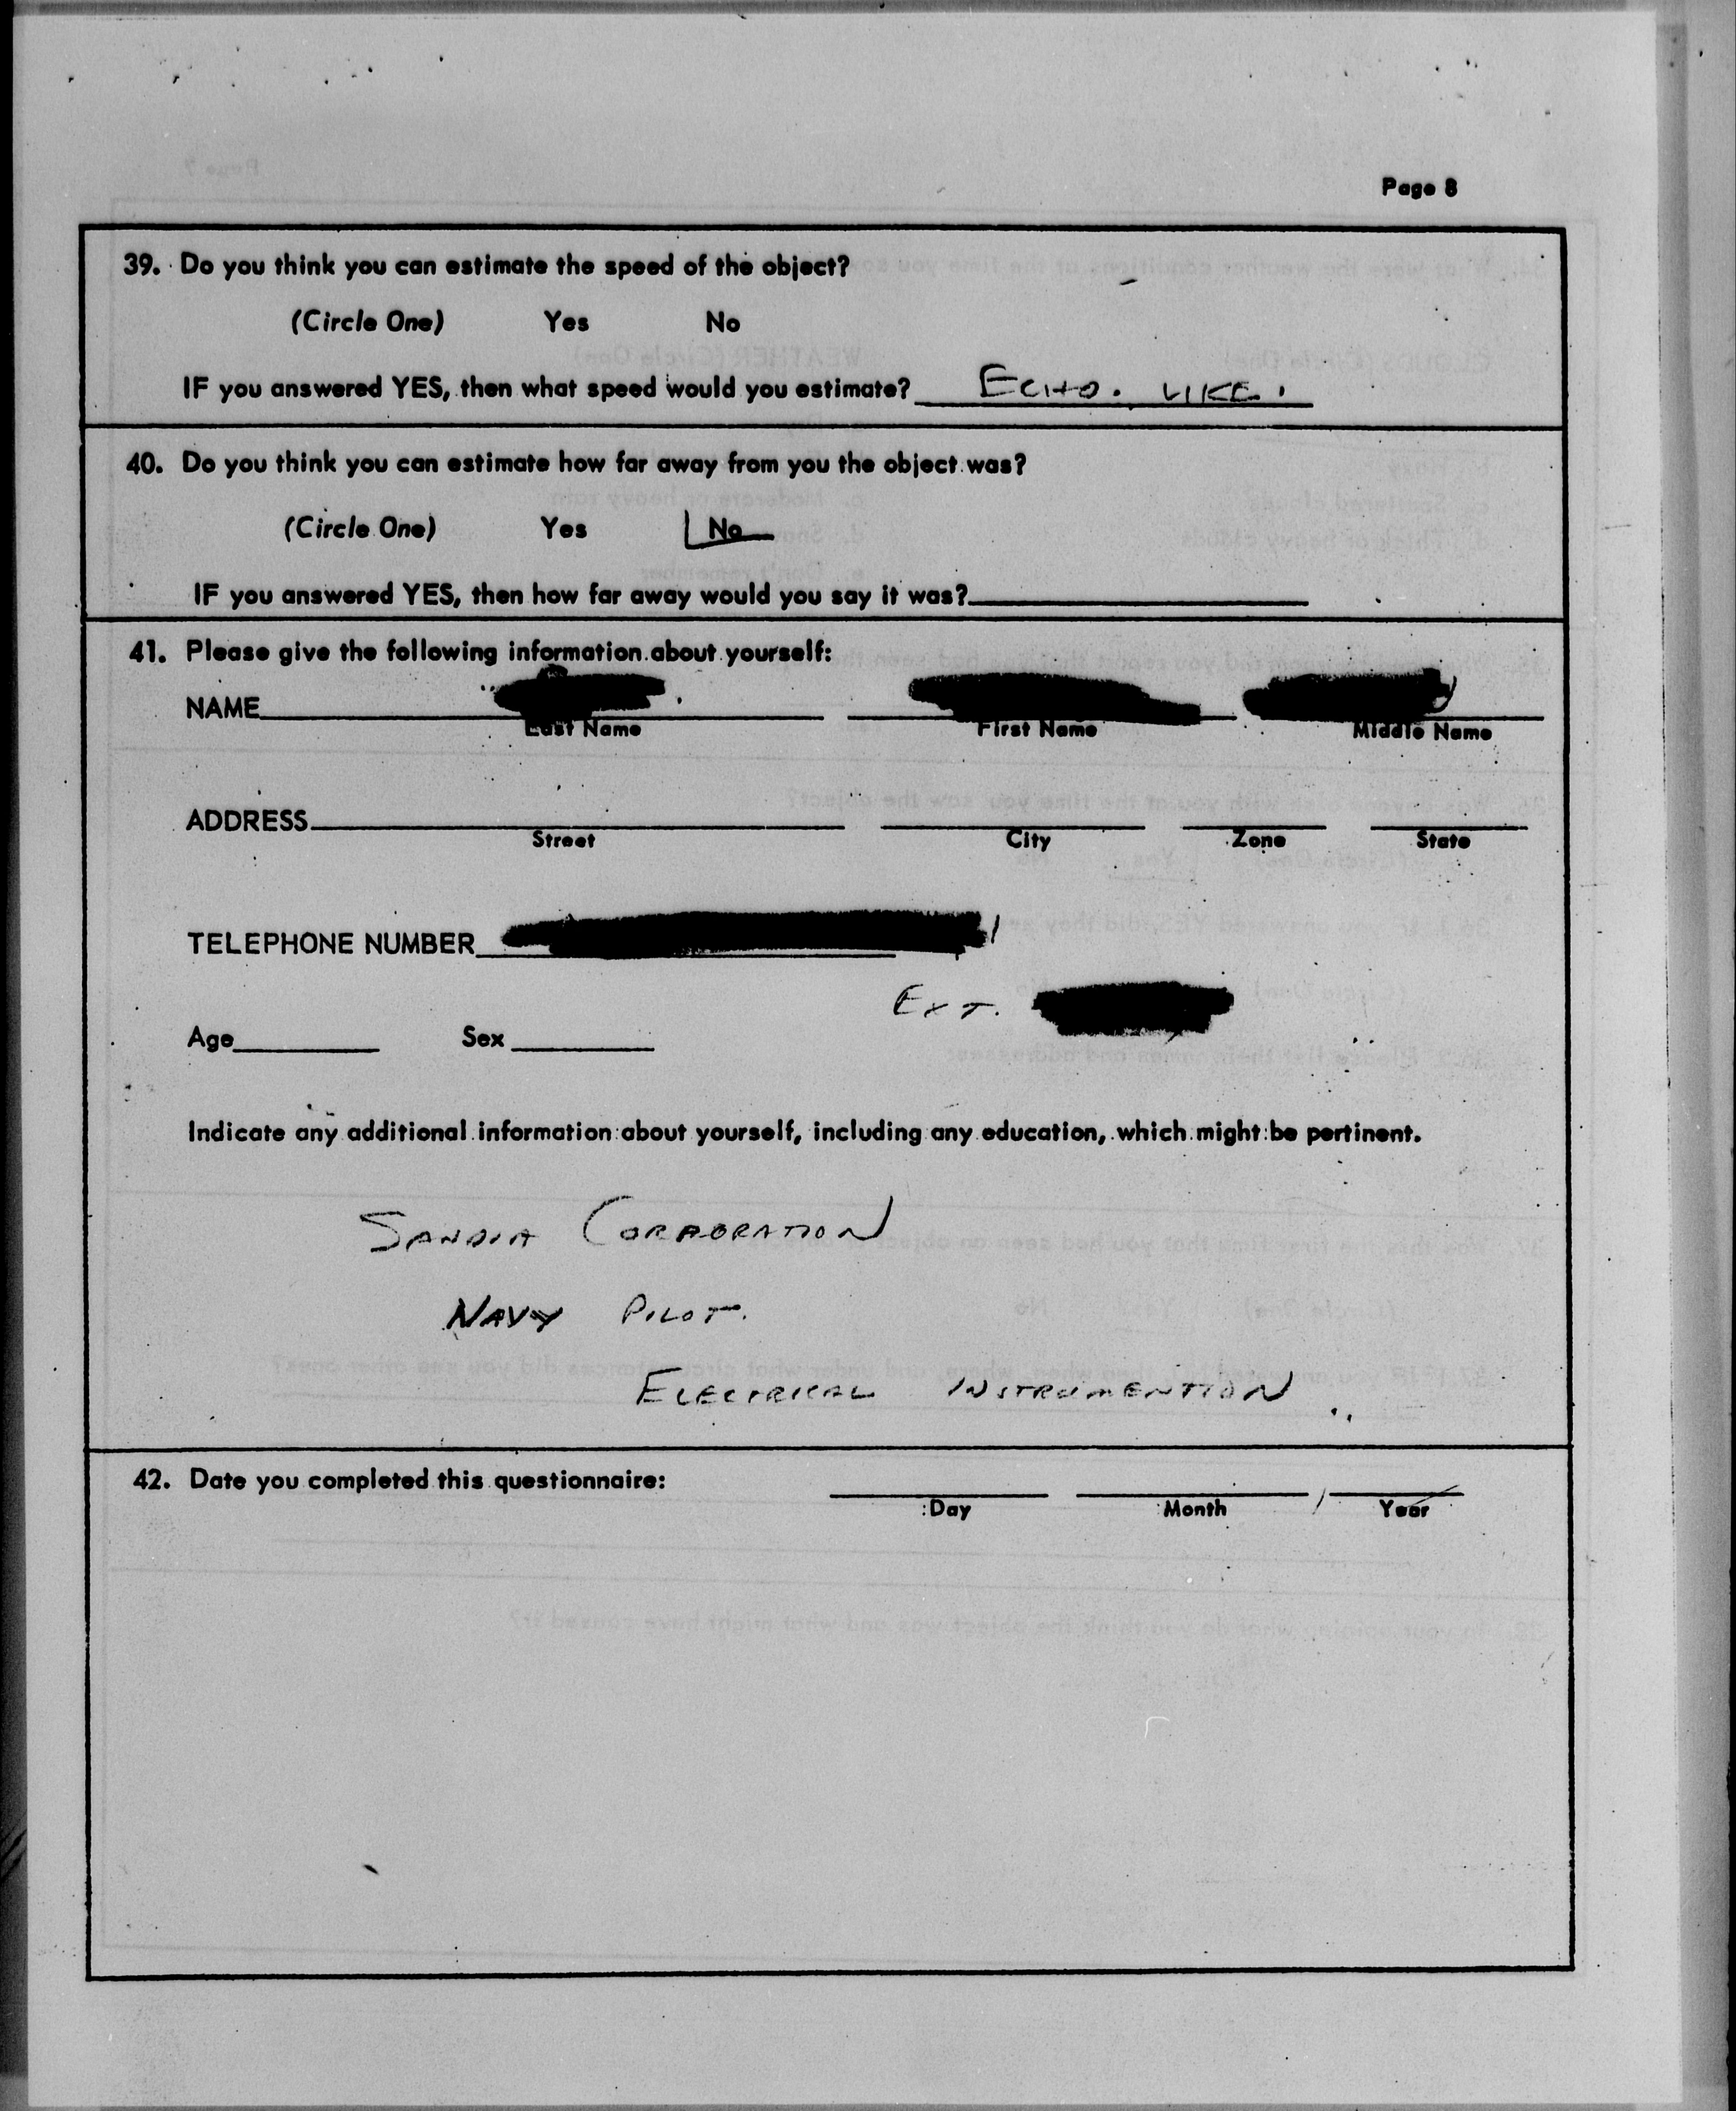 Page 8
39. Do you think you can estimate the speed of the object?
(Circle One) Yes No
IF you answered YES, then what speed would you estimate? ECHO. LIKE.
40. Do you think you can estimate how far away from you the object was?
(Circle One) Yes No
IF you answered YES, then how far away would you say it was?
41. Please give the following information about yourself:
NAME
Last Name First Name Middle Name
ADDRESS
Street City Zone State
TELEPHONE NUMBER
EXT.
Age Sex
Indicate any additional information about yourself, including any education, which might be pertinent.
SANDIA CORPORATION
NAVY PILOT.
ELECTRICAL INSTRUMENTION
42. Date you completed this questionnaire:
Day Month Year